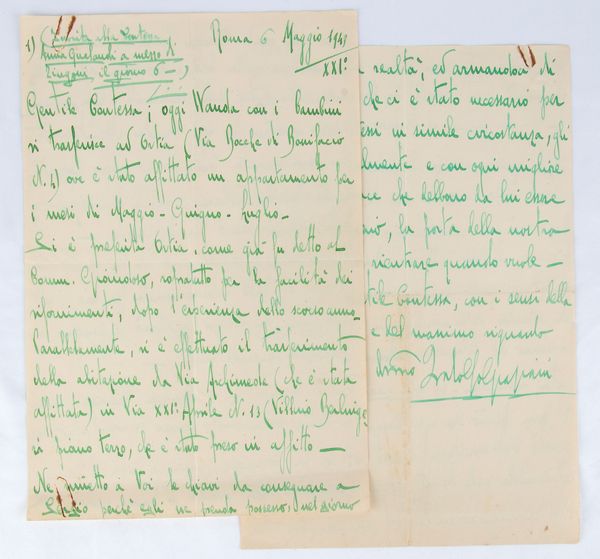 1) (Scritta alla Contessa
Anna Gnelandi a mezzo di
Zingoni il giorno 6 —)
Roma 6 Maggio 1943
XXI°
Gentile Contessa, oggi Wanda con i bambini
si trasferisce ad Ostia (Via Bocche di Bonifacio
N. 4) ove è stato affittato un appartamento per
i mesi di Maggio - Giugno - Luglio -
Si è preferita Ostia, come già fu detto al
Comm. Giocondoso, sopratutto per la facilità dei
rifornimenti, dopo l'esperienza dello scorso anno.
Parallelamente, si è effettuato il trasferimento
della abitazione da Via Archimede (che è stata
affittata) in Via XXI° Aprile N. 13 (Villino
in piano terzo, che è stato preso in affitto —
Ne rimetto a Voi le chiavi da consegnare a
Sergio perchè egli ne prenda possesso, nel giorno
realtà, ed armandoci di
che ci è stato necessario per
in simile circostanza, gli
e con ogni migliore
che debbono da lui essere
la porta della nostra
rientrare quando vuole —
Contessa, con i sensi della
e del massimo riguardo